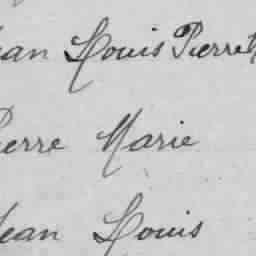 Jean Louis Pierret
Pierre Marie
Jean Louis